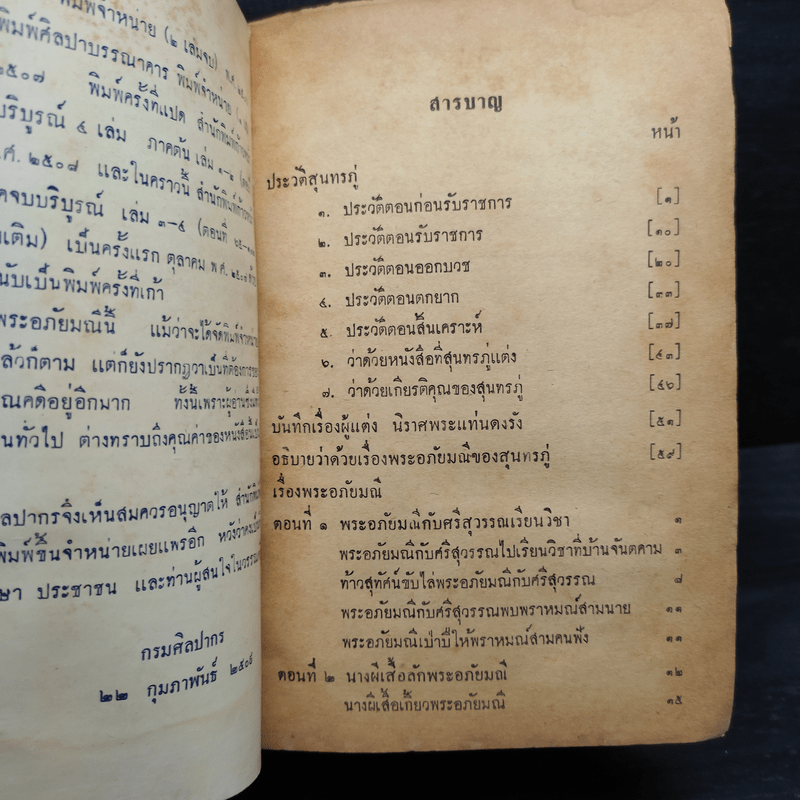 พิมพ์จำหน่าย (๒ เล่มจบ)
พิมพ์ศิลปาบรรณาคาร พิมพ์จำหน่าย
๒๕๐๗ พิมพ์ครั้งที่แปด
บริบูรณ์ ๔ เล่ม ภาคต้น เล่ม ๑-๒
ศ. ๒๕๐๘ และในคราวนี้
จบบริบูรณ์ เล่ม ๓-๔ (ตอนที่
เติม) เป็นครั้งแรก ตุลาคม พ.ศ.
นับเป็นพิมพ์ครั้งที่เก้า
พระอภัยมณีนี้ แม้ว่าจะได้จัดพิมพ์จำหน่าย
ล้วก็ตาม แต่ก็ยังปรากฏว่าเป็นที่ต้องการของ
ณคดีอยู่อีกมาก ทั้งนี้เพราะผู้อ่าน
นทั่วไป ต่างทราบถึงคุณค่าของหนังสือ
ลปากรจึงเห็นสมควรอนุญาตให้
พิมพ์ขึ้นจำหน่ายเผยแพร่อีก หวังว่า
ษา ประชาชน และท่านผู้สนใจใน
กรมศิลปากร
๒๒ กุมภาพันธ์
สารบาญ
หน้า
ประวัติสุนทรภู่
๑. ประวัติตอนก่อนรับราชการ [๑]
๒. ประวัติตอนรับราชการ [๑๐]
๓. ประวัติตอนออกบวช [๒๐]
๔. ประวัติตอนตกยาก [๓๓]
๕. ประวัติตอนสิ้นเคราะห์ [๓๗]
๖. ว่าด้วยหนังสือที่สุนทรภู่แต่ง [๔๓]
๗. ว่าด้วยเกียรติคุณของสุนทรภู่ [๔๖]
บันทึกเรื่องผู้แต่ง นิราศพระแท่นดงรัง [๕๑]
อธิบายว่าด้วยเรื่องพระอภัยมณีของสุนทรภู่ [๕๙]
เรื่องพระอภัยมณี
ตอนที่ ๑ พระอภัยมณีกับศรีสุวรรณเรียนวิชา ๑
พระอภัยมณีกับศรีสุวรรณไปเรียนวิชาที่บ้านจันตคาม ๓
ท้าวสุทัศน์ขับไล่พระอภัยมณีกับศรีสุวรรณ ๘
พระอภัยมณีกับศรีสุวรรณพบพราหมณ์สามนาย ๑๑
พระอภัยมณีเป่าปี่ให้พราหมณ์สามคนฟัง ๑๑
ตอนที่ ๒ นางผีเสื้อลักพระอภัยมณี ๑๒
นางผีเสื้อเกี้ยวพระอภัยมณี ๑๕